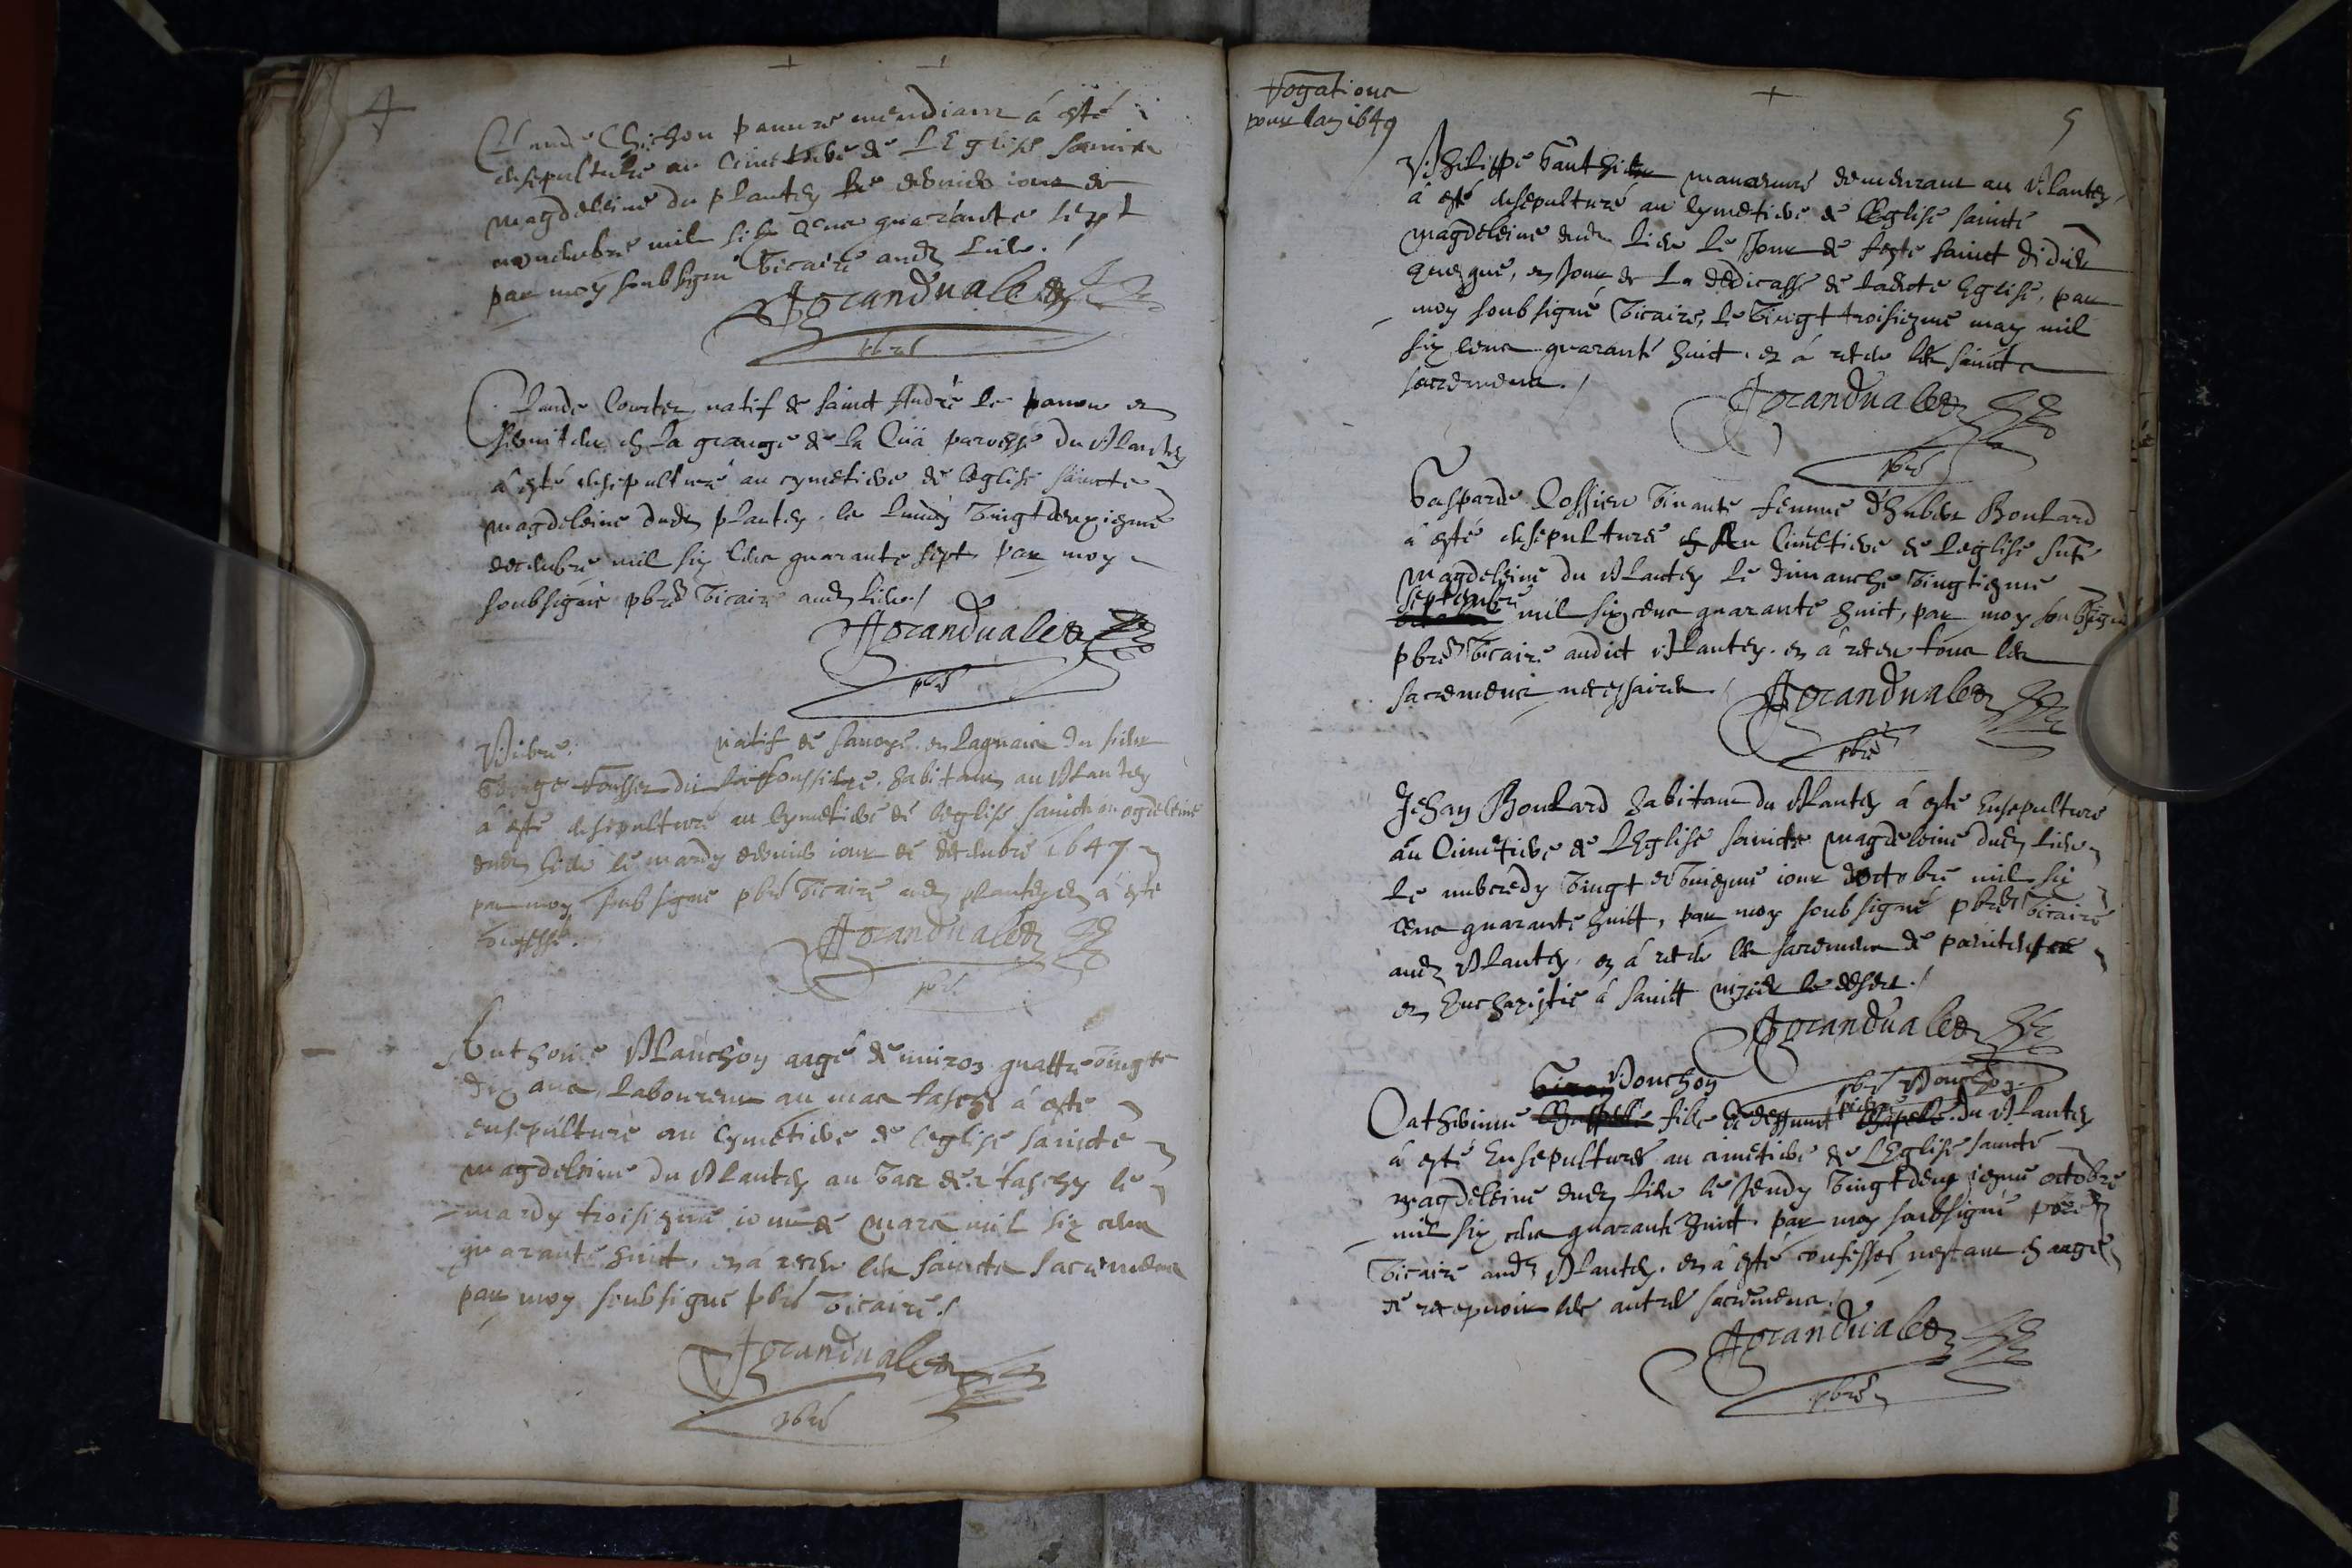 4
Claude Chichon pauvre mendiant à esté
ensepulturé au Cimetiere de LEglise saincte
Magdeleine du plantey le dernier iour de
novembre mil six cens quarante sept
par moy soubsigné vicaire aud lieu
Grandvalet
pbre
Claude Courtet natif de sainct André le panou et
serviteur en la grange de la parroisse du Plantey
à esté ensepulturé au cymetiere de leglise saincte
Magdeleine dud plantey le lundy vingtdeuxiesme
decembre mil six cens quarante sept par moy
soubsigné pbre vicaire aud lieu
Grandvalet
pbre
Pierre natif de savoye en du sieur
habitant au Plantey
à esté ensepulturé au cymetiere de leglise saincte magdeleine
dud lieu le mardy dernier iour de decembre 1647
par moy soubsigné pbre vicaire aud plantey et à esté
confessé
Grandvalet
pbre
Anthoine Planchon aagé denviron quattre vingts
dix ans laboureur au mas taschy à esté
ensepulturé au cymetiere de leglise saincte
magdeleine du Plantey au vas des taschy le
mardy troisiesme iour de mars mil six cens
quarante huict, et à receu les saincts sacremens
par moy soubsigné pbre vicaire
Grandvalet
pbre
pour lan 1649
5
Philippe Gauthier manoeuvre demeurant au Plantey
à esté ensepulturé au cymetiere de leglise saincte
Magdeleine dud lieu le Jour de feste sainct didier
evesque, et Jour de La dedicasse de ladicte Eglise, par
moy soubsigné vicaire, le vingt troisiesme may mil
six cens quarante huict, et à receu les saincts
sacremens
Grandvalet
pbre
Gasparde Cossieu vivante femme d'huber Boulard
à esté ensepulturé au Cimetiere de leglise
Magdeleine du Plantey le dimanche vingtiesme
septembre mil six cens quarante huict, par moy soubsigné
pbre vicaire audict Plantey et à receu tous les
sacremens necessaires
Grandvalet
pbre
Jehan Boulard habitant du Plantey à esté Ensepulturé
au Cimetiere de LEglise saincte magdeleine dud lieu
le mercredy vingt et uniesme iour doctobre mil six
cens quarante huict, par moy soubsigné pbre vicaire
aud Plantey, et à receu les sacremens de penitence
et Eucharistie à sainct nizier le desert
Grandvalet
pbre
Ponchon
Ponchon
Catherinne fille de deffunct pierre du Plantey
à esté Ensepulturé au cimetiere de LEglise saincte
magdeleine dud lieu le Jeudy vingtdeuxiesme octobre
mil six cens quarante huict par moy soubsigné pbre
vicaire aud Plantey et à esté confessée nestant en aage
de recepvoir les autres sacremens
Grandvalet
pbre